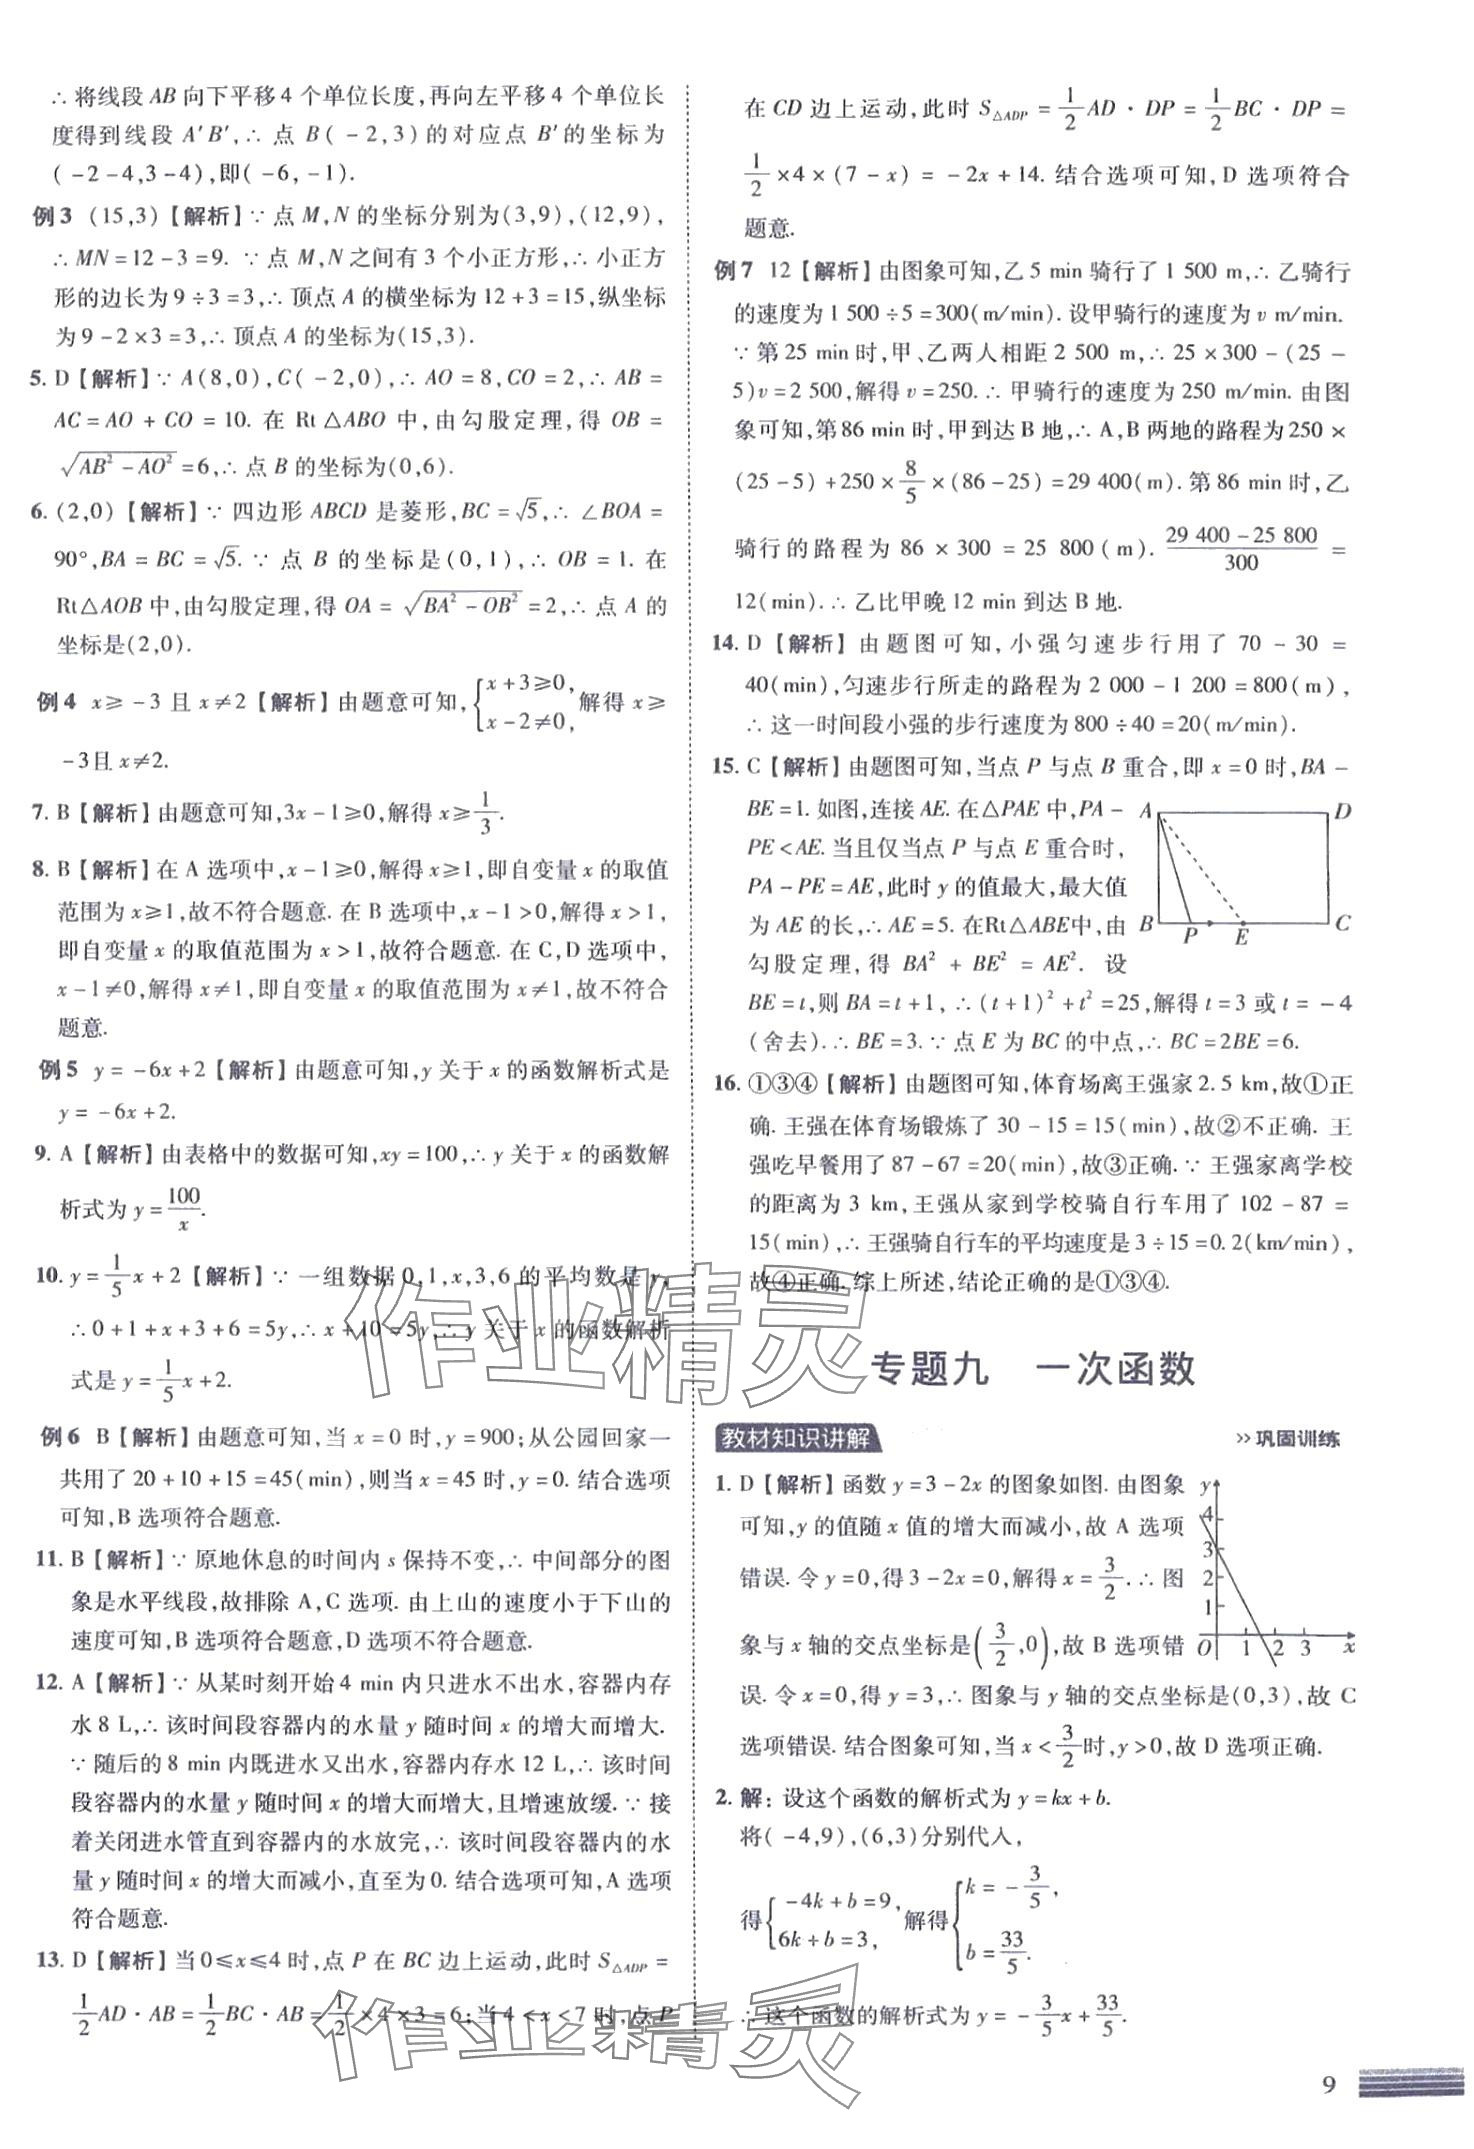 ∴将线段 AB 向下平移 4 个单位长度,再向左平移 4 个单位长
度得到线段 A'B',∴点 B(-2,3)的对应点 B'的坐标为
(-2-4,3-4),即(-6,-1).
例3 (15,3)【解析】∵点 M,N 的坐标分别为(3,9),(12,9),
∴MN=12-3=9. ∵点 M,N 之间有 3 个小正方形,∴小正方
形的边长为 9÷3=3,∴顶点 A 的横坐标为 12+3=15,纵坐标
为 9-2×3=3,∴顶点 A 的坐标为(15,3).
5. D【解析】∵A(8,0),C(-2,0),∴AO=8,CO=2,∴AB=
AC=AO+CO=10. 在 Rt△ABO 中,由勾股定理,得 OB=
√(AB²-AO²)=6,∴点 B 的坐标为(0,6).
6. (2,0)【解析】∵四边形 ABCD 是菱形,BC=√5,∴∠BOA=
90°,BA=BC=√5. ∵点 B 的坐标是(0,1),∴OB=1. 在
Rt△AOB 中,由勾股定理,得 OA=√(BA²-OB²)=2,∴点 A 的
坐标是(2,0).
例4 x≥-3 且 x≠2【解析】由题意可知,{x+3≥0, x-2≠0,解得 x≥
-3且 x≠2.
7. B【解析】由题意可知,3x-1≥0,解得 x≥1/3.
8. B【解析】在 A 选项中,x-1≥0,解得 x≥1,即自变量 x 的取值
范围为 x≥1,故不符合题意. 在 B 选项中,x-1>0,解得 x>1,
即自变量 x 的取值范围为 x>1,故符合题意. 在 C,D 选项中,
x-1≠0,解得 x≠1,即自变量 x 的取值范围为 x≠1,故不符合
题意.
例5 y=-6x+2【解析】由题意可知,y 关于 x 的函数解析式是
y=-6x+2.
9. A【解析】由表格中的数据可知,xy=100,∴y 关于 x 的函数解
析式为 y=100/x.
10. y=1/5x+2【解析】∵一组数据 0,1,x,3,6 的平均数是 y,
∴0+1+x+3+6=5y,∴x+10=5y,∴y 关于 x 的函数解析
式是 y=1/5x+2.
例6 B【解析】由题意可知,当 x=0 时,y=900;从公园回家一
共用了 20+10+15=45(min),则当 x=45 时,y=0. 结合选项
可知,B 选项符合题意.
11. B【解析】∵原地休息的时间内 s 保持不变,∴中间部分的图
象是水平线段,故排除 A,C 选项. 由上山的速度小于下山的
速度可知,B 选项符合题意,D 选项不符合题意.
12. A【解析】∵从某时刻开始 4 min 内只进水不出水,容器内存
水 8 L,∴该时间段容器内的水量 y 随时间 x 的增大而增大.
∵随后的 8 min 内既进水又出水,容器内存水 12 L,∴该时间
段容器内的水量 y 随时间 x 的增大而增大,且增速放缓. ∵接
着关闭进水管直到容器内的水放完,∴该时间段容器内的水
量 y 随时间 x 的增大而减小,直至为 0. 结合选项可知,A 选项
符合题意.
13. D【解析】当 0≤x≤4 时,点 P 在 BC 边上运动,此时 S△ADP=
1/2AD·AB=1/2BC·AB=1/2×4×3=6;当 4<x<7 时,点 P
在 CD 边上运动,此时 S△ADP=1/2AD·DP=1/2BC·DP=
1/2×4×(7-x)=-2x+14. 结合选项可知,D 选项符合
题意.
例7 12【解析】由图象可知,乙 5 min 骑行了 1 500 m,∴乙骑行
的速度为 1 500÷5=300(m/min). 设甲骑行的速度为 v m/min.
∵第 25 min 时,甲、乙两人相距 2 500 m,∴25×300-(25-
5)v=2 500,解得 v=250. ∴甲骑行的速度为 250 m/min. 由图
象可知,第 86 min 时,甲到达 B 地,∴A,B 两地的路程为 250×
(25-5)+250×8/5×(86-25)=29 400(m). 第 86 min 时,乙
骑行的路程为 86×300=25 800(m). (29 400-25 800)/300=
12(min). ∴乙比甲晚 12 min 到达 B 地.
14. D【解析】由题图可知,小强匀速步行用了 70-30=
40(min),匀速步行所走的路程为 2 000-1 200=800(m),
∴这一时间段小强的步行速度为 800÷40=20(m/min).
15. C【解析】由题图可知,当点 P 与点 B 重合,即 x=0 时,BA-
BE=1. 如图,连接 AE. 在△PAE 中,PA-
PE<AE. 当且仅当点 P 与点 E 重合时,
PA-PE=AE,此时 y 的值最大,最大值
为 AE 的长,∴AE=5. 在Rt△ABE中,由
勾股定理,得 BA²+BE²=AE². 设
BE=t,则 BA=t+1,∴(t+1)²+t²=25,解得 t=3 或 t=-4
(舍去). ∴BE=3. ∵点 E 为 BC 的中点,∴BC=2BE=6.
A D
B P E C
16. ①③④【解析】由题图可知,体育场离王强家 2.5 km,故①正
确. 王强在体育场锻炼了 30-15=15(min),故②不正确. 王
强吃早餐用了 87-67=20(min),故③正确. ∵王强家离学校
的距离为 3 km,王强从家到学校骑自行车用了 102-87=
15(min),∴王强骑自行车的平均速度是 3÷15=0.2(km/min),
故④正确. 综上所述,结论正确的是①③④.
专题九 一次函数
教材知识讲解 >>巩固训练
1. D【解析】函数 y=3-2x 的图象如图. 由图象
可知,y 的值随 x 值的增大而减小,故 A 选项
错误. 令 y=0,得 3-2x=0,解得 x=3/2. ∴图
象与 x 轴的交点坐标是(3/2,0),故 B 选项错
误. 令 x=0,得 y=3,∴图象与 y 轴的交点坐标是(0,3),故 C
选项错误. 结合图象可知,当 x<3/2时,y>0,故 D 选项正确.
y
4
3
2
1
O 1 2 3 x
2. 解:设这个函数的解析式为 y=kx+b.
将(-4,9),(6,3)分别代入,
得{-4k+b=9, 6k+b=3,解得{k=-3/5, b=33/5.
∴这个函数的解析式为 y=-3/5x+33/5.
9
作业精灵
作业精灵